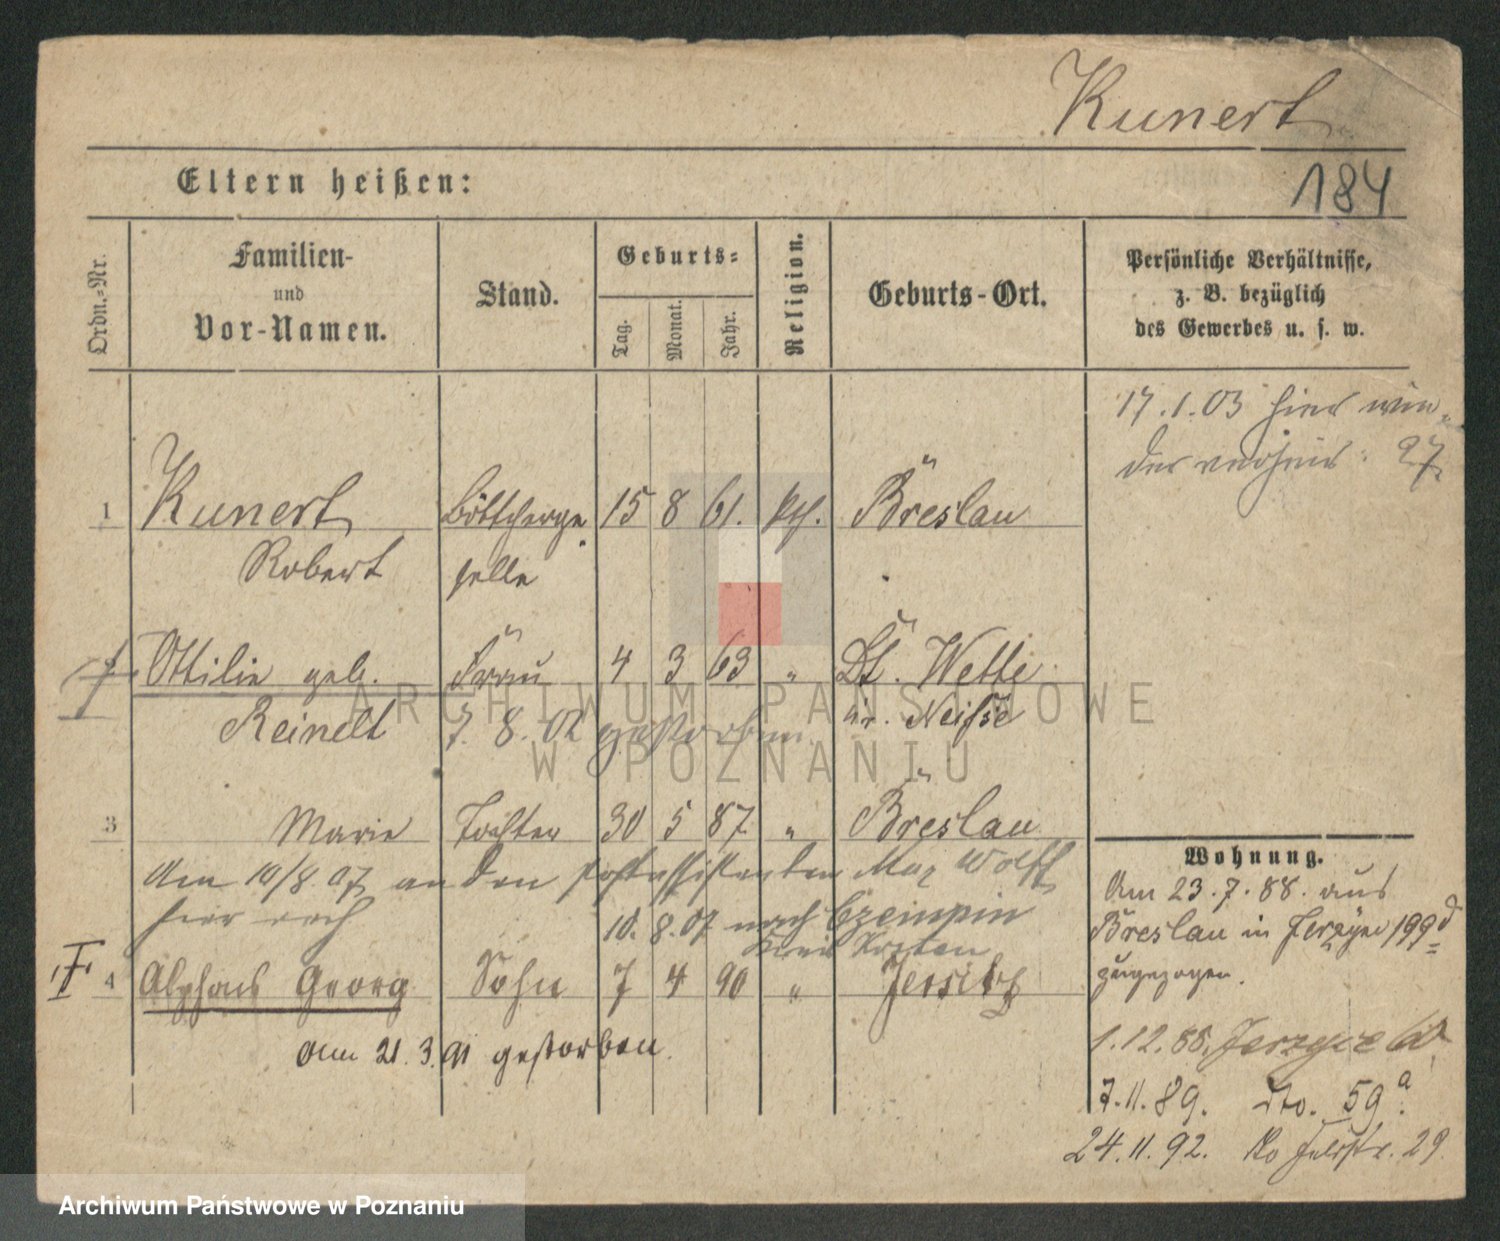 Kunert
184
Eltern heißen:
Ordn.-Nr.
Familien-
und
Vor-Namen.
Stand.
Geburts-
Tag.
Monat.
Jahr.
Religion.
Geburts-Ort.
Persönliche Verhältnisse,
z. B. bezüglich
des Gewerbes u. s. w.
17.1.03 hier wie-
der
27
1 Kunert Böttcherge 15 8 61. kth. Breslau
Robert selle
Ottilie geb. Frau 4 3 63 " Dt. Wette
Reinelt 7. 8. 02 gestorben Kr. Neisse
3 Marie Tochter 30 5 87 " Breslau
Am 10/8. 07 an den Postassistenten Max Wolff
hier verh
10. 8. 07 nach Czempin
Kreis Kosten
4 Alphons Georg Sohn 7 4 90 " Jersitz
am 21. 3. 91 gestorben.
Wohnung.
Am 23. 7. 88. aus
Breslau in Jerzyce 199d
zugezogen.
1.12.88. Jerzyce
7.11.89. dto. 59a.
24.11.92. 29
ARCHIWUM PAŃSTWOWE
W POZNANIU
Archiwum Państwowe w Poznaniu